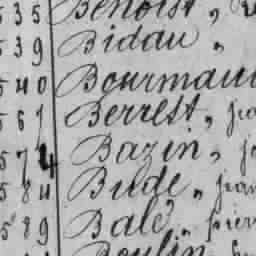 535 Benoist,
539 Bidau,
540 Bourmau
561 Berrest,
574 Bazin,
584 Bude,
589 Balé,
Boulin